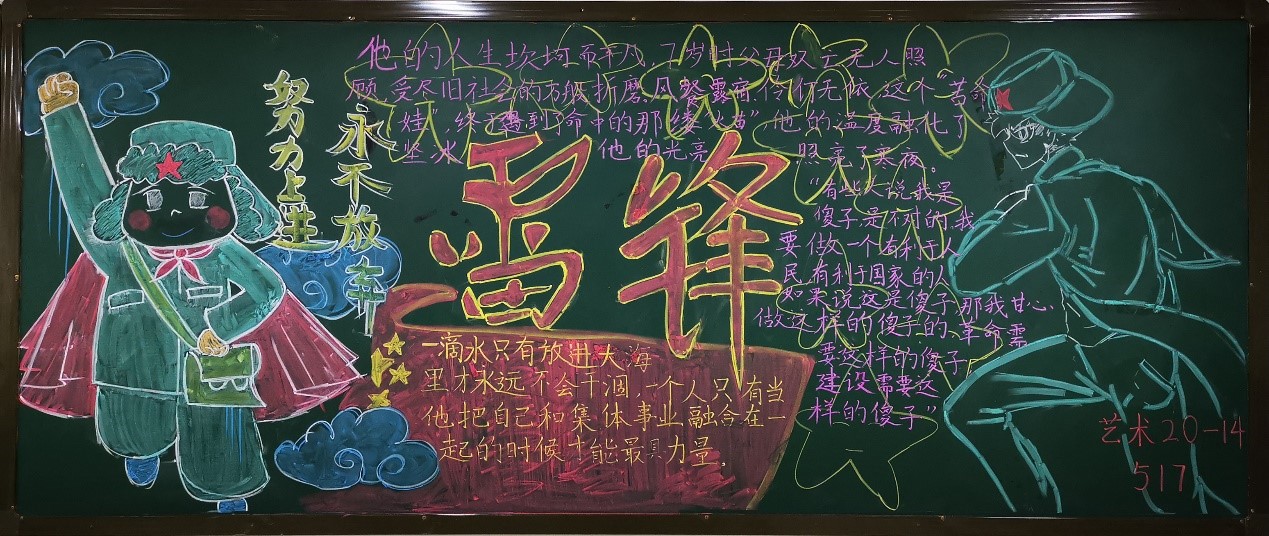 他的人生坎坷而平凡,7岁时父母双亡无人照
顾,受尽旧社会的万般折磨,风餐露宿,伶仃无依,这个“苦命
娃”,终于遇到了命中的那缕“火苗”,他的温度融化了
坚冰 他的光亮 照亮了寒夜。
努力上进
永不放弃
雷锋
“有些人说我是
傻子,是不对的,我
要做一个有利于人
民,有利于国家的人
如果说这是傻子,那我甘心
做这样的傻子的,革命需
要这样的傻子
建设需要这
样的傻子”
一滴水只有放进大海
里才永远不会干涸,一个人只有当
他把自己和集体事业融合在一
起的时候才能最具力量。
艺术20-14
517